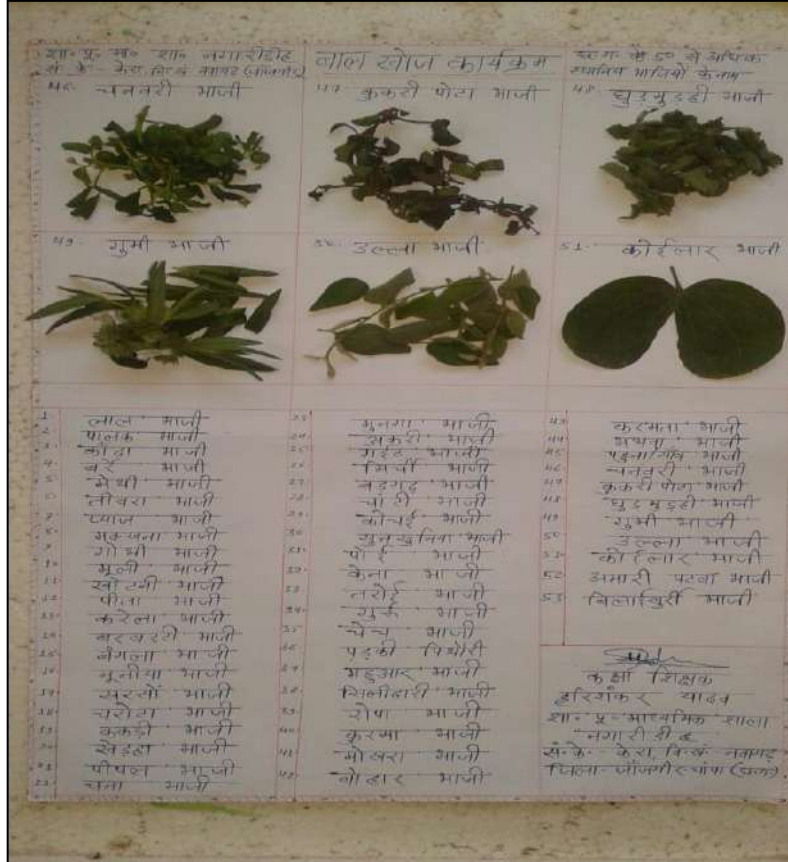 शा. पू. मा. शा. नगारीडीह
सं. के - केरा, वि.ख. नवागढ़ (जांजगीर)
बाल खोज कार्यक्रम
छ.ग. के 50 से अधिक
स्थानीय भाजियों के नाम
46. चनवरी भाजी
47. कुकरी पोटा भाजी
48. घुड़मुड़ी भाजी
49. गुमी भाजी
50. उल्ला भाजी
51. कोईलार भाजी
1. लाल भाजी
2. पालक भाजी
3. कांदा भाजी
4. बर्रे भाजी
5. मेथी भाजी
6. तीवरा भाजी
7. प्याज भाजी
8. भाजी
9. गोभी भाजी
10. मूली भाजी
11. खोटनी भाजी
12. भाजी
13. करेला भाजी
14. बरबट्टी भाजी
15. बंगला भाजी
16. भाजी
17. सरसों भाजी
18. चरोटा भाजी
19. ककड़ी भाजी
20. खेड़हा भाजी
21. पीपल भाजी
22. चना भाजी
23. मुनगा भाजी
24. अकरी भाजी
25. भाजी
26. मिर्ची भाजी
27. भाजी
28. चांटी भाजी
29. कोचई भाजी
30. भाजी
31. पोई भाजी
32. केना भाजी
33. तरोई भाजी
34. भाजी
35. चेंच भाजी
36. पड़की
37. भाजी
38. सिलीहारी भाजी
39. रोपा भाजी
40. कुरमा भाजी
41. बोखरा भाजी
42. बोहार भाजी
43. करमता भाजी
44. भथवा भाजी
45. भाजी
46. चनवरी भाजी
47. कुकरी पोटा भाजी
48. घुड़मुड़ी भाजी
49. गुमी भाजी
50. उल्ला भाजी
51. कोईलार भाजी
52. अमारी पटवा भाजी
53. बिलाईखुर्री भाजी
कक्षा शिक्षक
हरिशंकर यादव
शा. पू. माध्यमिक शाला
नगारीडीह
सं. के. - केरा, वि.खं. नवागढ़
जिला - जांजगीर-चांपा (छ.ग.)